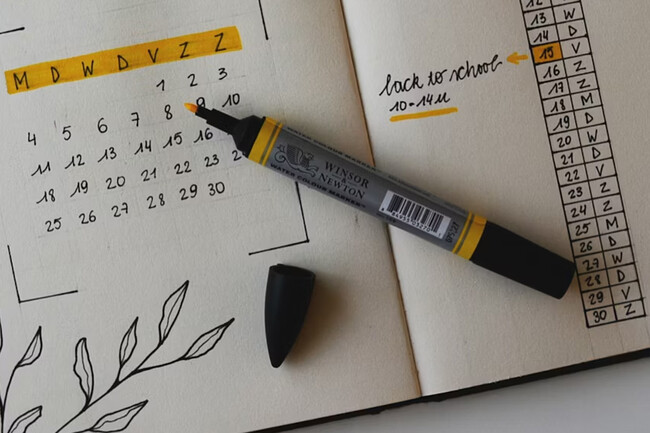 M D W D V Z Z
1 2 3
4 5 6 7 8 9 10
11 12 13 14 15 16
18 19 20 21 22 23 2
25 26 27 28 29 30
WINSOR
& NEWTON
WATER COLOUR MARKER
back to school
10-14u
12
13 W
14 D
15 V
16 Z
17 Z
18 M
19 D
20 W
21 D
22 V
23 Z
24 Z
25 M
26 D
27 W
28 D
29 V
30 Z